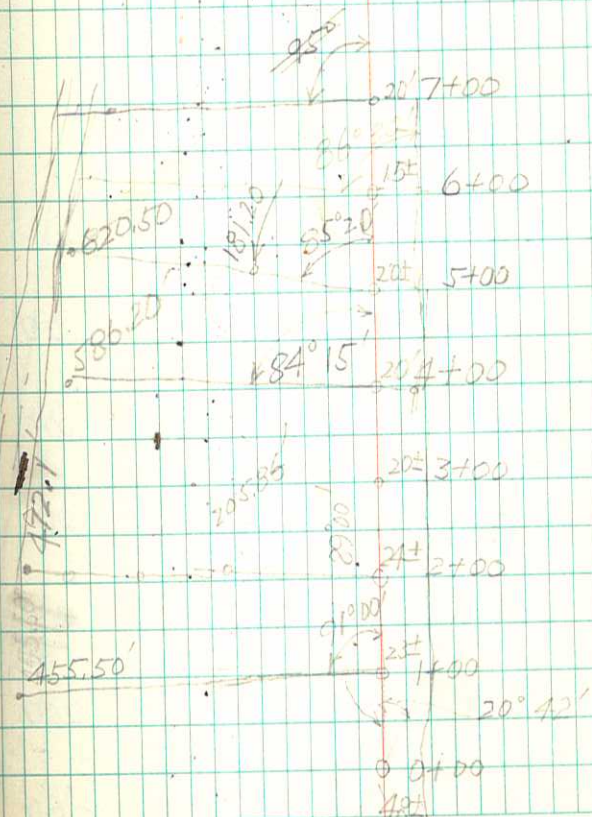 95°
20' 7+00
15± 6+00
620.50
181.20
85°20
20± 5+00
586.20'
84° 15'
20' 4+00
20± 3+00
205.86'
472.1'
24± 2+00
91°00
455.50'
23± 1+00
20° 42'
0+00